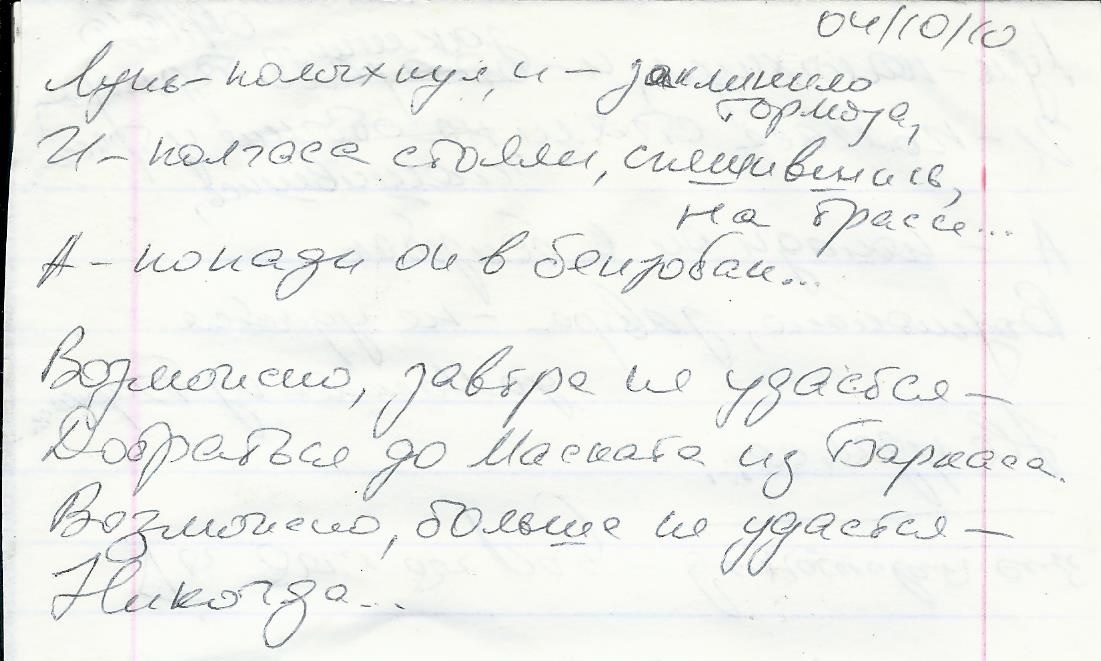 04/10/10
Лунь – полыхнул, и – заклинило
тормоза,
И – полчаса стояли, спешившись,
на трассе...
А – попади он в бензобак...
Возможно, завтра не удастся –
Добраться до Маската из Баркаса.
Возможно, больше не удастся –
Никогда...